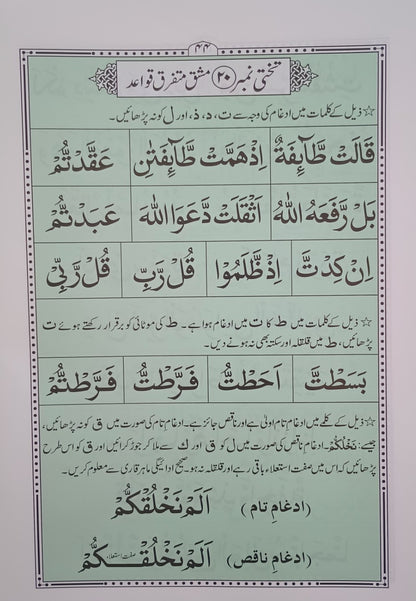 ۴۴
تختی نمبر ۲۰ مشق متفرق قواعد
☆ ذیل کے کلمات میں ادغام کی وجہ سے ت، د، ذ، اور ل کو نہ پڑھائیں۔
قَالَتْ طَّآئِفَةٌ اِذْهَمَّتْ طَّآئِفَتٰنِ عَقَدْتُّمْ
بَلْ رَّفَعَهُ اللّٰهُ اَثْقَلَتْ دَّعَوَا اللّٰهَ عَبَدْتُّمْ
اِنْ كِدْتَّ اِذْ ظَّلَمُوْا قُلْ رَّبِّ قُلْ رَّبِّیْ
☆ ذیل کے کلمات میں ط کا ت میں ادغام ہوا ہے۔ ط کی موٹائی کو برقرار رکھتے ہوئے ت
پڑھائیں، ط میں قلقلہ اور سکتہ بھی نہ ہونے دیں۔
بَسَطْتَّ اَحَطْتُّ فَرَّطْتُّ فَرَّطْتُّمْ
☆ ذیل کے کلمے میں ادغامِ تام اولیٰ ہے اور ناقص جائز ہے۔ ادغامِ تام کی صورت میں ق کو نہ پڑھائیں،
جیسے: نَخْلُكُّمْ۔ ادغامِ ناقص کی صورت میں ل کو ق اور ك سے ملا کر جوڑ کرائیں اور ق کو اس طرح
پڑھائیں کہ اس میں صفت استعلاء باقی رہے اور قلقلہ نہ ہو۔ صحیح ادائیگی ماہر قاری سے معلوم کریں۔
(ادغامِ تام) اَلَمْ نَخْلُقْكُّمْ
(ادغامِ ناقص) اَلَمْ نَخْلُقْكُمْ صفت استعلاء